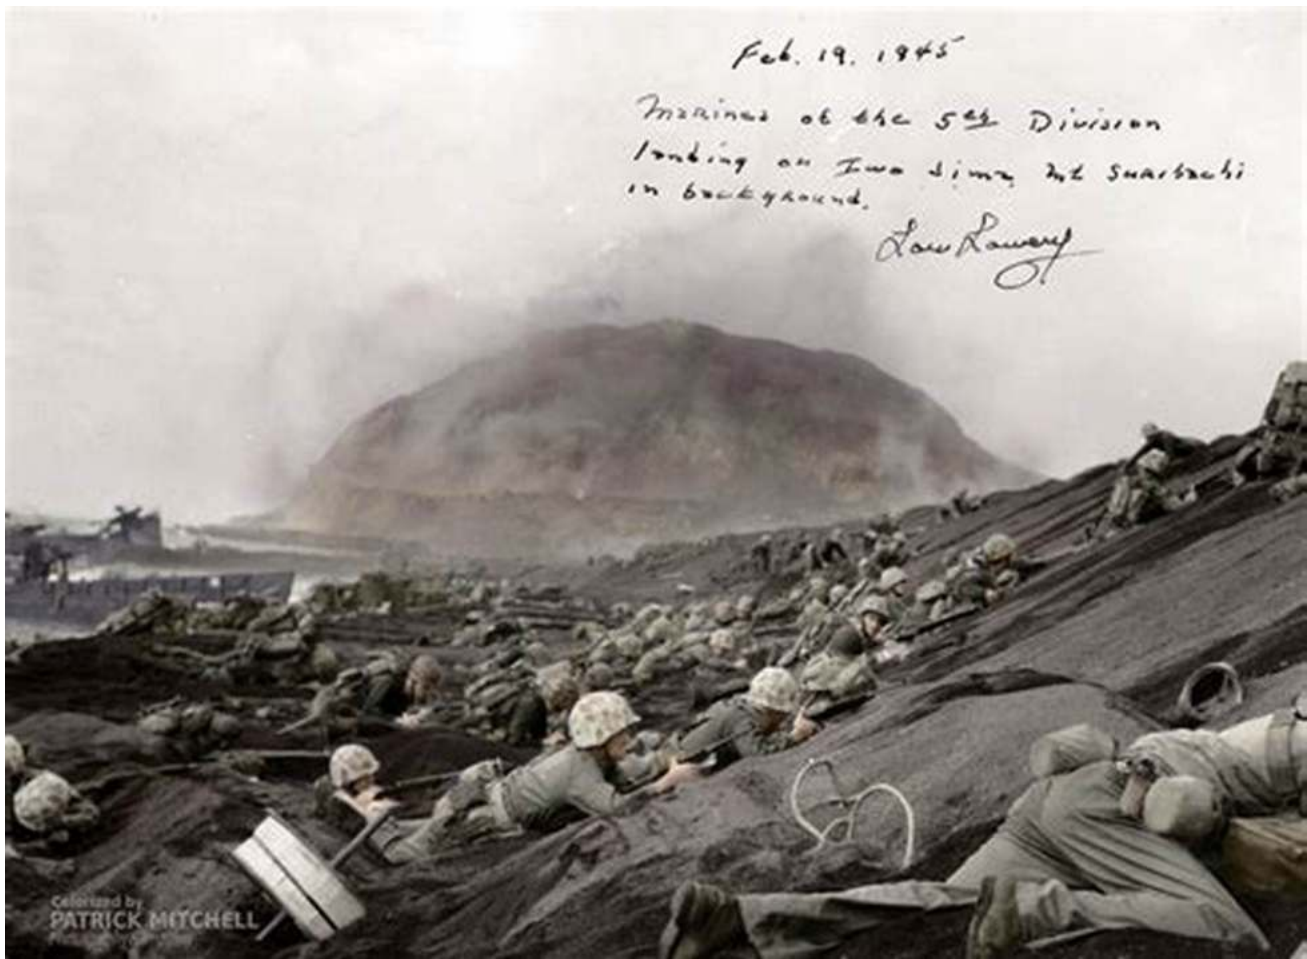 Feb. 19. 1945
Marines of the 5th Division
landing on Iwo Jima, Mt Suribachi
in background.
Lou Lowery
Colorized by
PATRICK MITCHELL